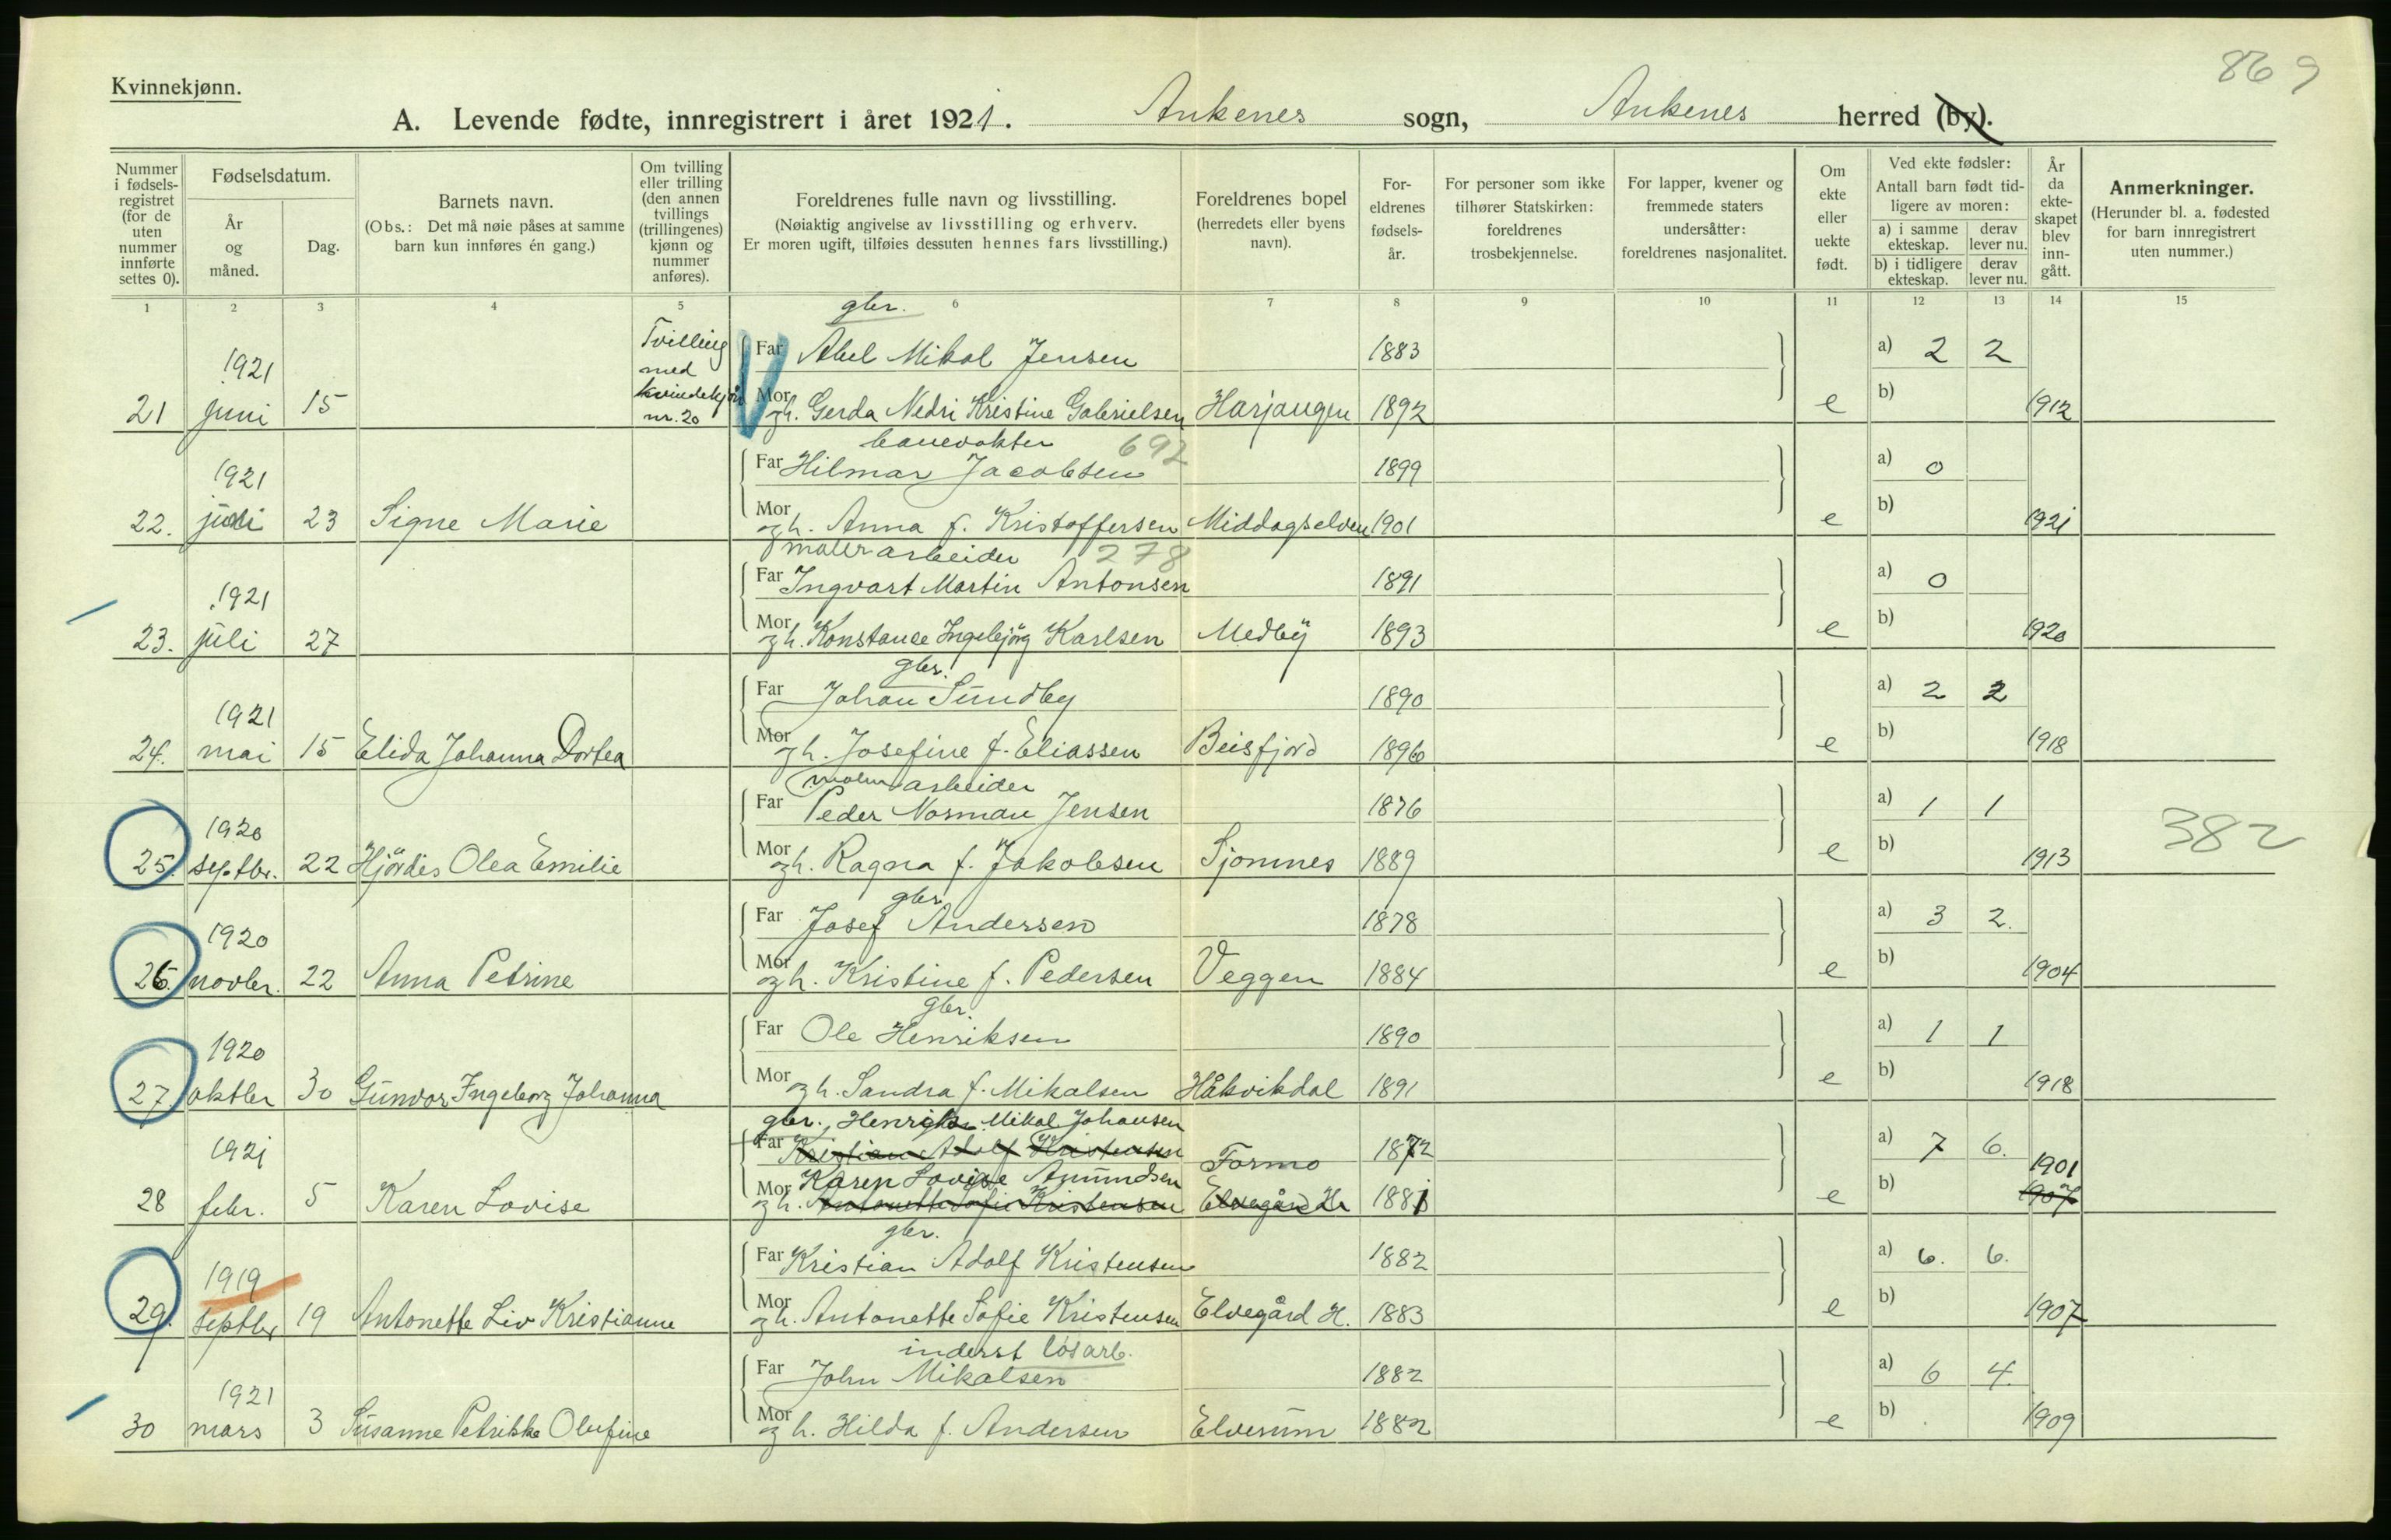 869
Kvinnekjønn.
A. Levende fødte, innregistrert i året 1921. Ankenes sogn, Ankenes herred (by).
Nummer i fødsels-registret (for de uten nummer innførte settes 0).
Fødselsdatum.
År og måned.
Dag.
Barnets navn.
(Obs.: Det må nøie påses at samme barn kun innføres én gang.)
Om tvilling eller trilling (den annen tvillings (trillingenes) kjønn og nummer anføres).
Foreldrenes fulle navn og livsstilling.
(Nøiaktig angivelse av livsstilling og erhverv. Er moren ugift, tilføies dessuten hennes fars livsstilling.)
Foreldrenes bopel (herredets eller byens navn).
For-eldrenes fødsels-år.
For personer som ikke tilhører Statskirken: foreldrenes trosbekjennelse.
For lapper, kvener og fremmede staters undersåtter: foreldrenes nasjonalitet.
Om ekte eller uekte født.
Ved ekte fødsler: Antall barn født tid-ligere av moren:
a) i samme ekteskap. derav lever nu.
b) i tidligere ekteskap. derav lever nu.
År da ekte-skapet blev inn-gått.
Anmerkninger.
(Herunder bl. a. fødested for barn innregistrert uten nummer.)
1 2 3 4 5 6 7 8 9 10 11 12 13 14 15
gbr.
Tvilling med kvindekjøn nr. 20
Far Abel Mikal Jensen 1883 a) 2 2
21 1921 juni 15 Mor og h. Gerda Nedri Kristine Gabrielsen Harjangen 1892 e b) 1912
banevokter 692
Far Hilmar Jacobsen 1899 a) 0
22. 1921 juli 23 Signe Marie Mor og h. Anna f. Kristoffersen Middagselven 1901 e b) 1921
arbeider 278
Far Ingvart Martin Antonsen 1891 a) 0
23. 1921 juli 27 Mor og h. Konstance Ingebjörg Karlsen Medby 1893 e b) 1920
gbr.
Far Johan Sundby 1890 a) 2 2
24. 1921 mai 15 Elida Johanna Dortea Mor og h. Josefine f. Eliassen Beisfjord 1896 e b) 1918
malmarbeider
Far Peder Norman Jensen 1876 a) 1 1
25. 1920 septbr. 22 Hjördis Olea Emilie Mor og h. Ragna f. Jakobsen Sjomnes 1889 e b) 1913 382
gbr
Far Josef Andersen 1878 a) 3 2.
26. 1920 novbr. 22 Anna Petrine Mor og h. Kristine f. Pedersen Veggen 1884 e b) 1904
gbr.
Far Ole Henriksen 1890 a) 1 1
27 1920 oktbr 30 Gunvor Ingeborg Johanna Mor og h. Sandra f. Mikalsen Håkvikdal 1891 e b) 1918
gbr., Henrik Mikal Johansen
Far Kristian Adolf Kristensen Formo 1872 a) 7 6. 1901
Karen Lovise Amundsen
28 1921 febr. 5 Karen Lovise Mor og h. Antonette Sofie Kristensen Elvegård H. 1881 e b) 1907
gbr.
Far Kristian Adolf Kristensen 1882 a) 6. 6.
29. 1919 septbr 19 Antonette Liv Kristianne Mor og h. Antonette Sofie Kristensen Elvegård H. 1883 e b) 1907
inderst løsarb.
Far John Mikalsen 1882 a) 6 4.
30 1921 mars 3 Susanne Petrikke Olufine Mor og h. Hilda f. Andersen Elverum 1882 e b) 1909